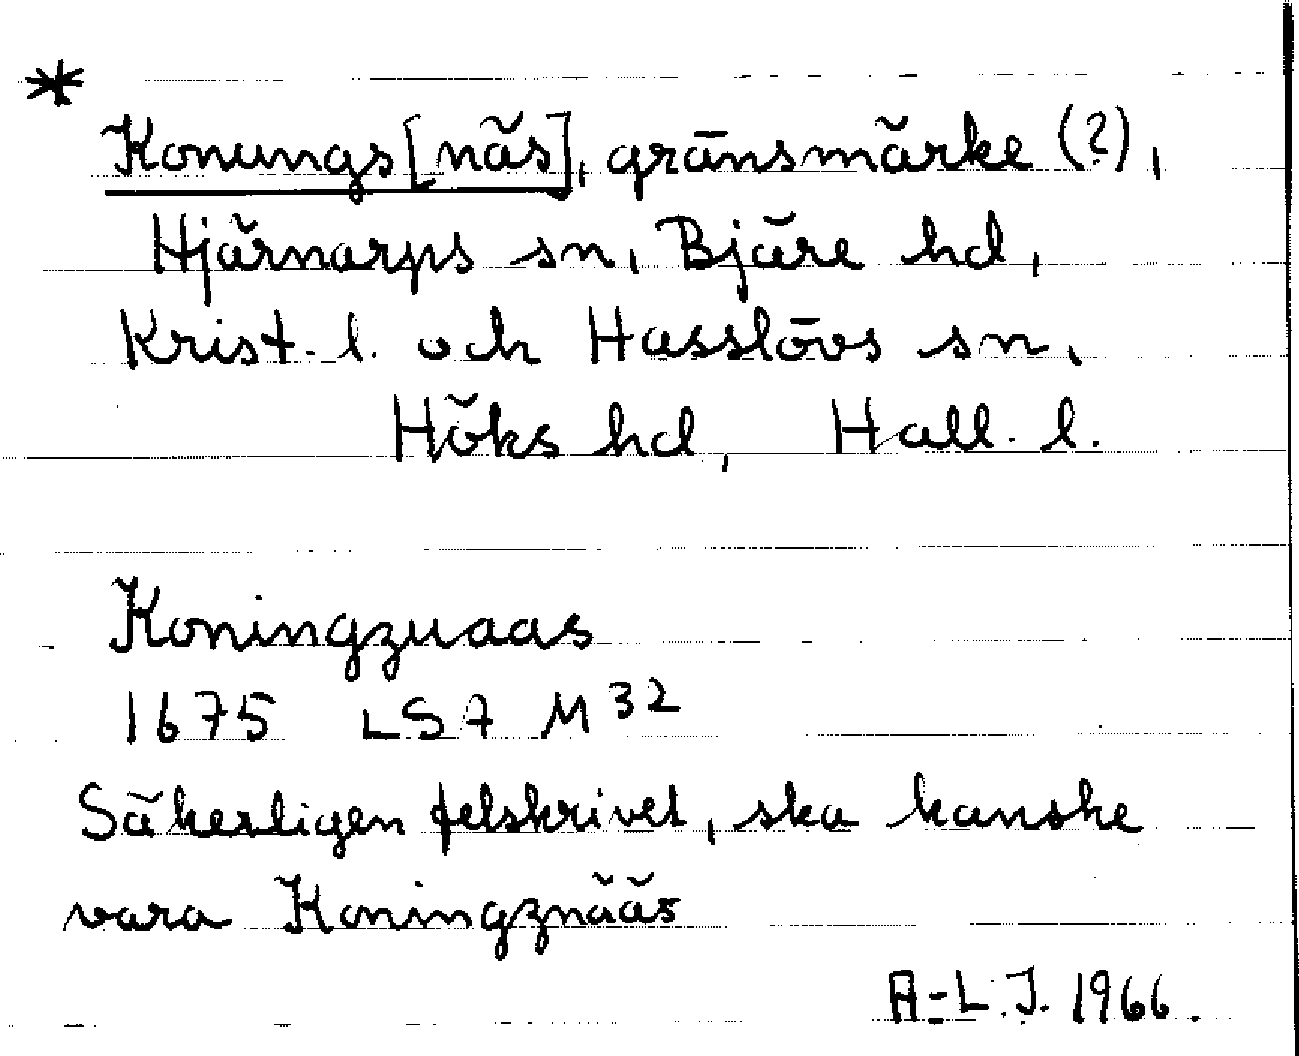 *
Konungs[näs], gränsmärke (?),
Hjärnarps sn, Bjäre hd,
Krist. l. och Hasslövs sn,
Höks hd, Hall. l.
Koningzuaas
1675 LSA M 32
Säkerligen felskrivet, ska kanske
vara Koningznääs
A-L. J. 1966.